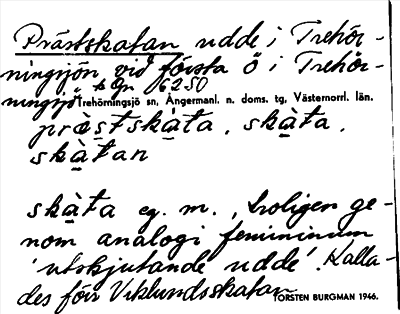 Prästskatan udde i Trehör-
ningsjön vid första ö i Trehör-
ningsjö
Trehörningsjö sn, Ångermanl. n. doms. tg, Västernorrl. län.
præ̀stskàta, skàta,
skàtan
skàta eg. m., troligen ge-
nom analogi femininum
'utskjutande udde'. Kalla-
des förr Viklundsskatan
TORSTEN BURGMAN 1946.